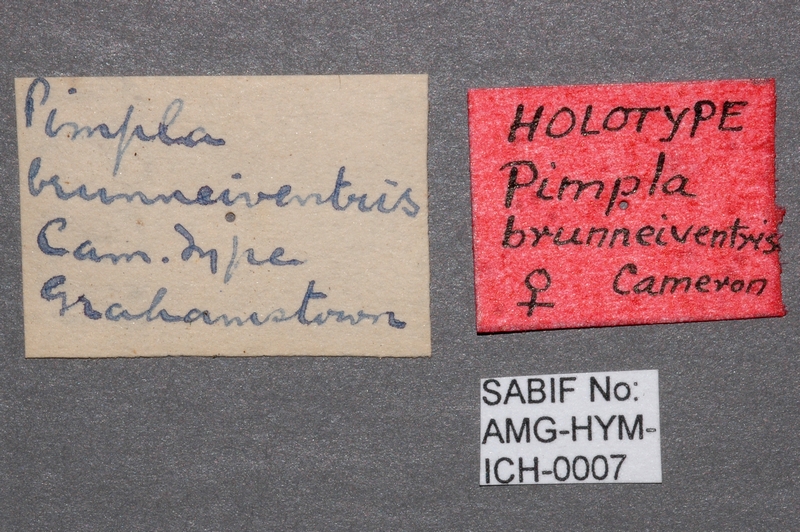 Pimpla
brunneiventris
Cam. Type
Grahamstown
HOLOTYPE
Pimpla
brunneiventris
♀ Cameron
SABIF No:
AMG-HYM-
ICH-0007